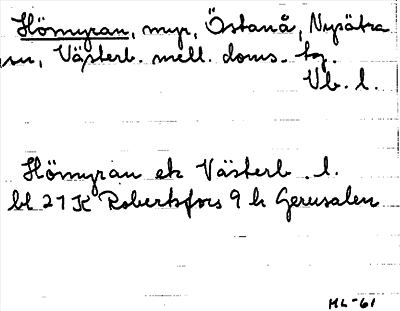 Hömyran, myr, Östanå, Nysätra
sn, Västerb. mell. doms. tg.
Vb. l.
Hömyran ek Västerb. l.
bl 21 K Robertsfors 9 h Gerusalen
ML-61